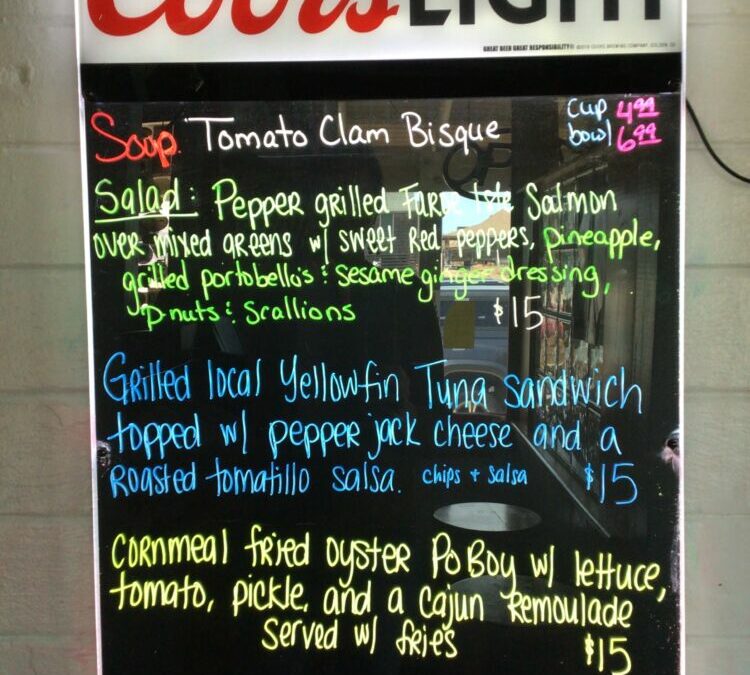 Coors LIGHT
GREAT BEER GREAT RESPONSIBILITY®
Soup: Tomato Clam Bisque
cup 4.99
bowl 6.99
Salad: Pepper grilled Faroe Isle Salmon
over mixed greens w/ sweet Red peppers, pineapple,
grilled portobello's & sesame ginger dressing,
p-nuts & Scallions $15
Grilled local Yellowfin Tuna sandwich
topped w/ pepper jack cheese and a
Roasted tomatillo salsa. chips + salsa $15
Cornmeal fried oyster Po Boy w/ lettuce,
tomato, pickle, and a Cajun Remoulade
Served w/ fries $15